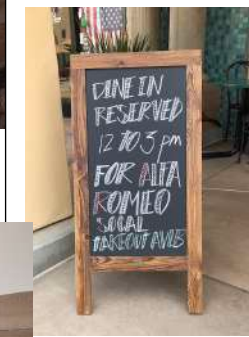 DINE IN
RESERVED
12 TO 3 pm
FOR ALFA
ROMEO
SOCAL
TAKEOUT AVLB